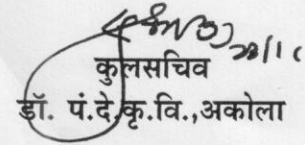 कुलसचिव
डॉ. पं.दे.कृ.वि.,अकोला